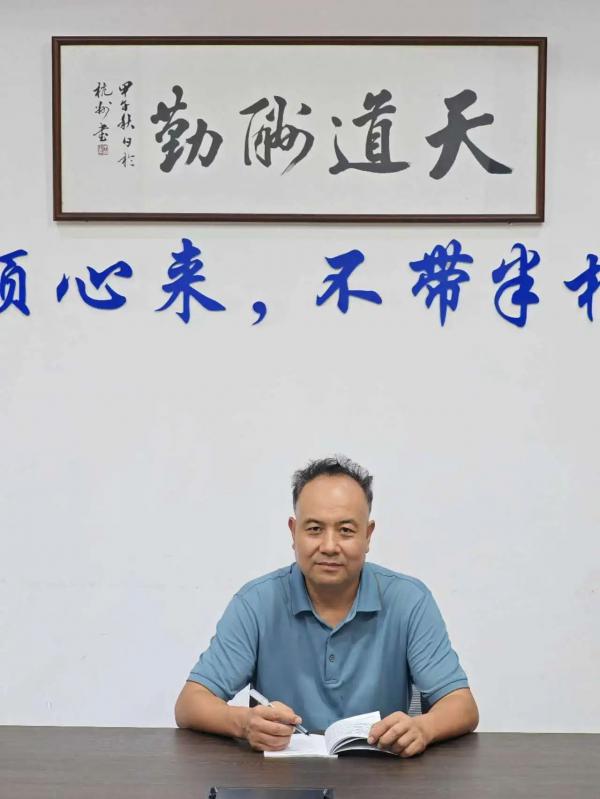 天道酬勤
甲午秋日於
杭州書
心来，不带半